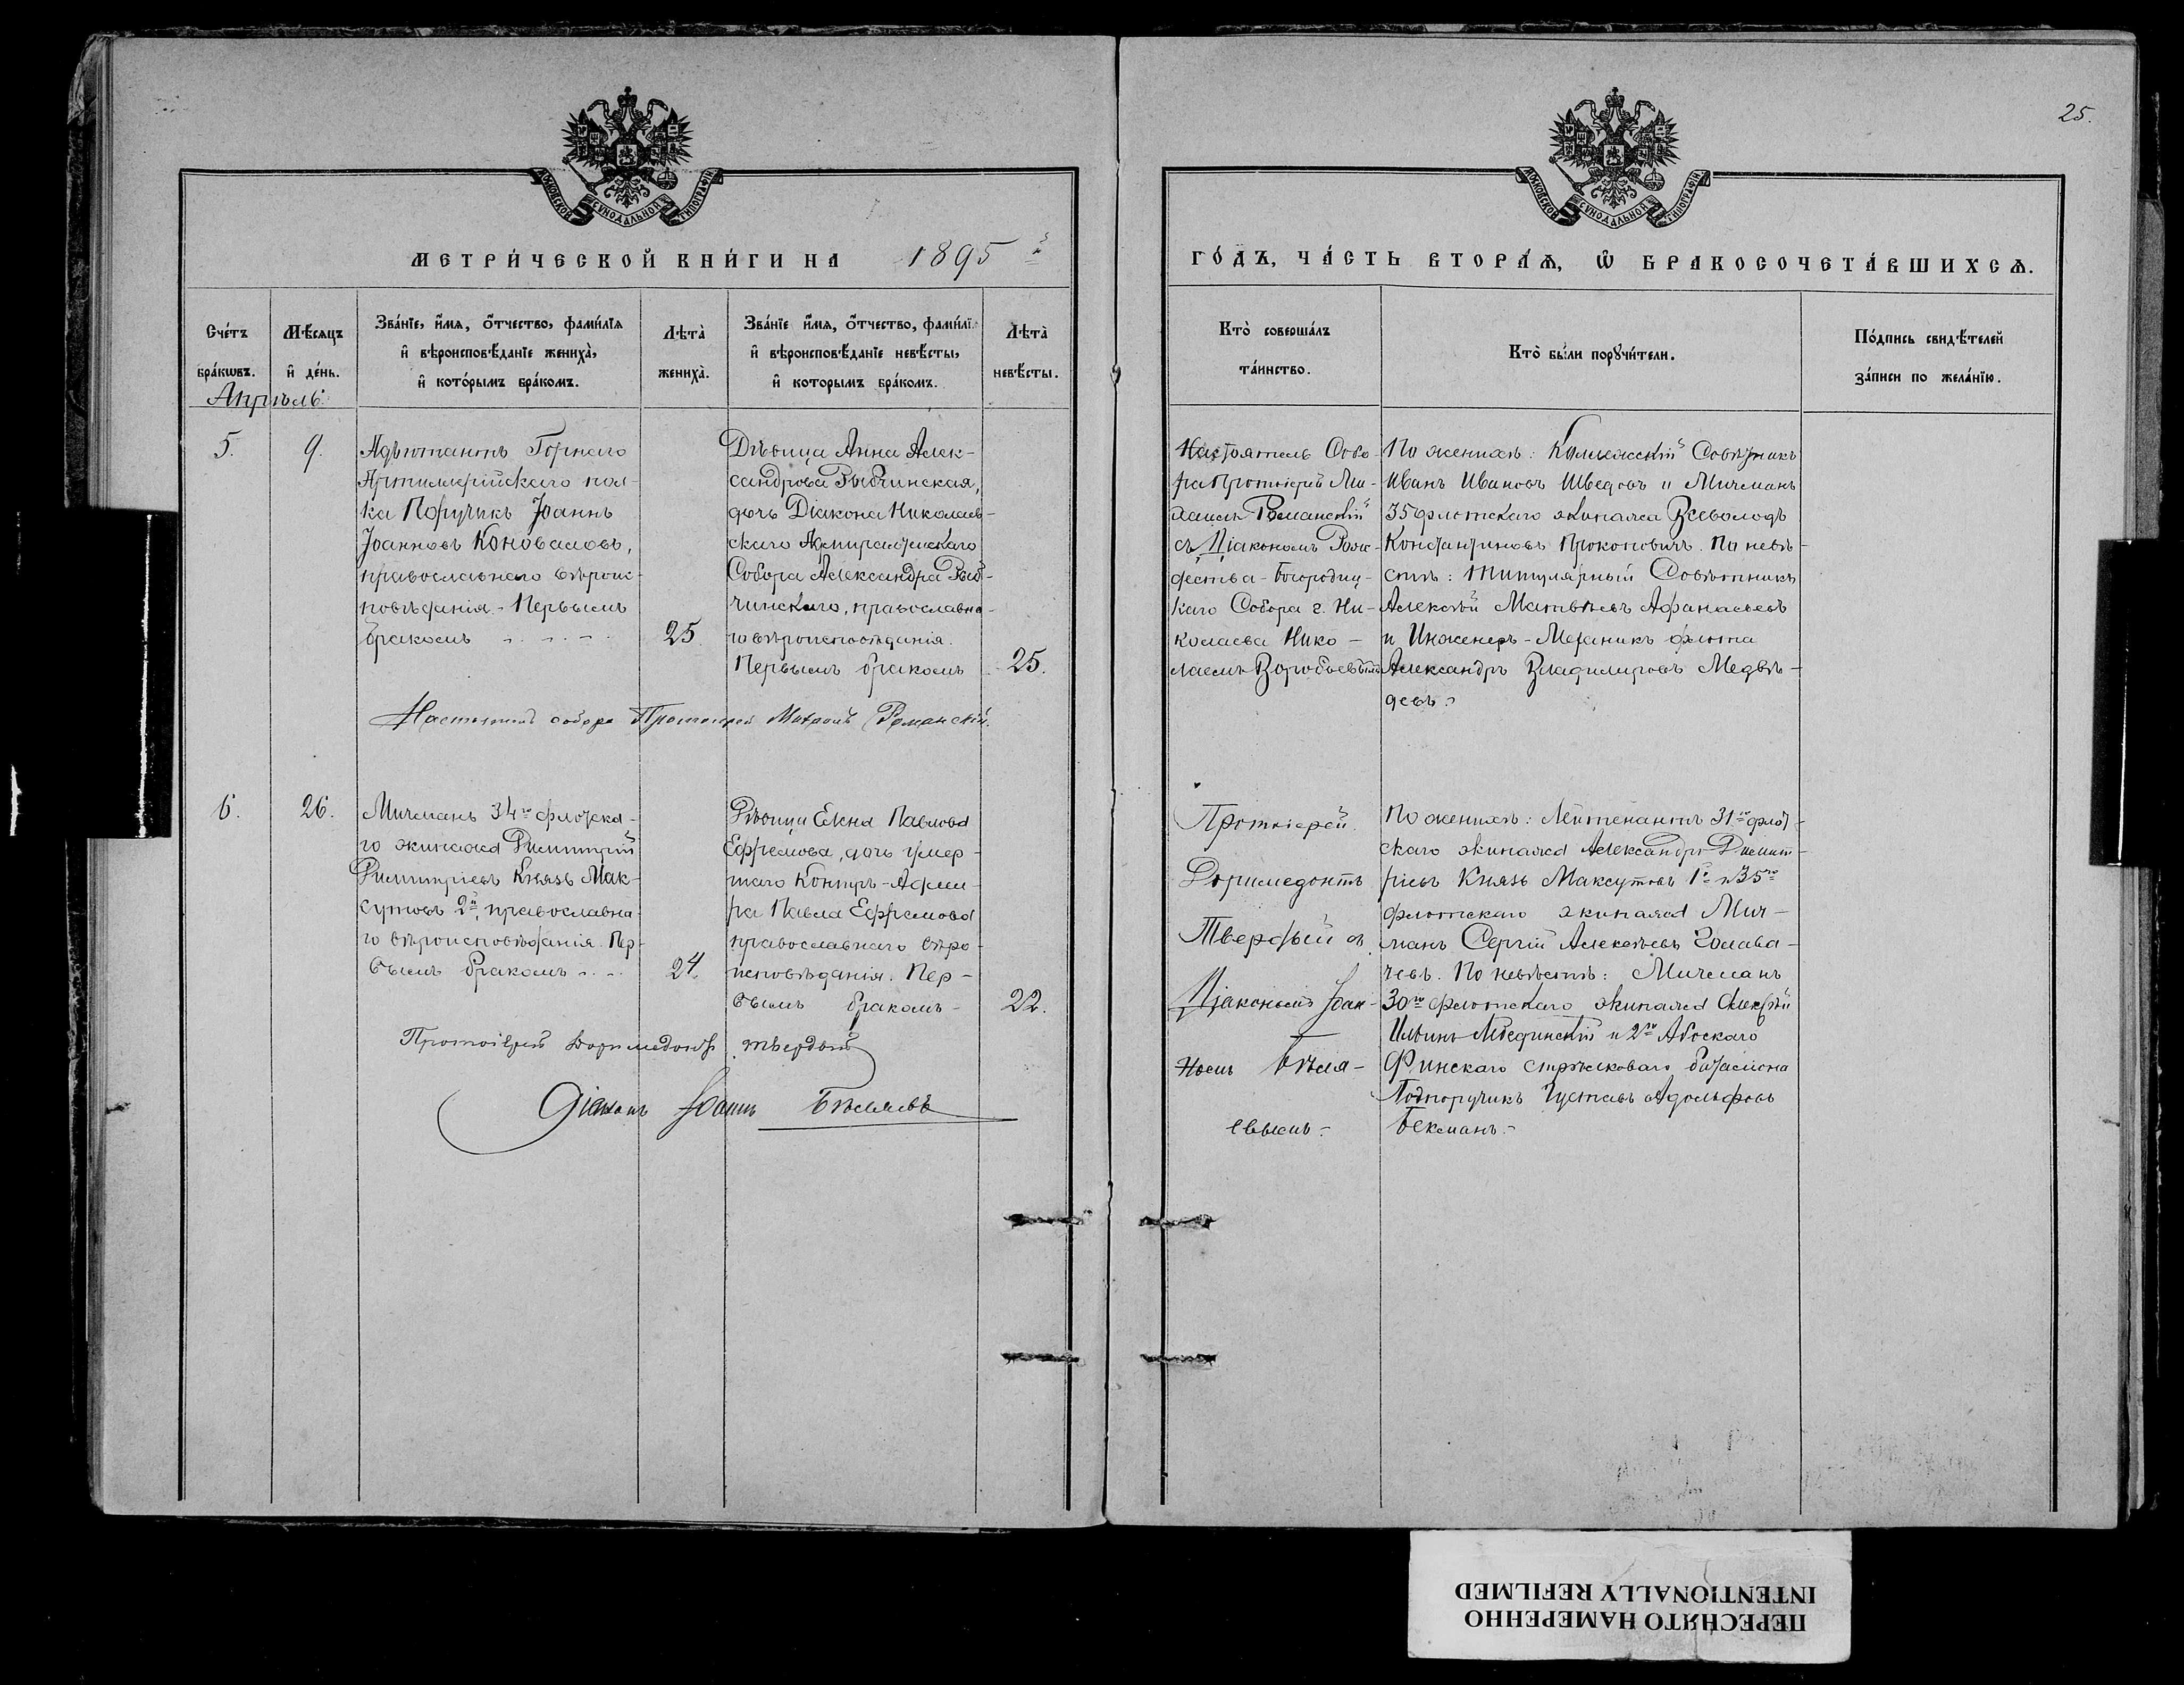 25.
МОСКОВСКОЙ СѴНОДАЛЬНОЙ ТИПОГРАФІИ
МОСКОВСКОЙ СѴНОДАЛЬНОЙ ТИПОГРАФІИ
МЕТРИ́ЧЕСКОЙ КНИ́ГИ НА 1895 й
ГО́ДЪ, ЧА́СТЬ ВТОРА́Ѧ, Ѡ БРАКОСОЧЕТА́ВШИХСѦ.
Сче́тъ
бра́кѡвъ.
Мѣ́сяцъ
и҆ де́нь.
Зва́нїе, и҆́мя, ѻ҆́тчество, фами́лїя
и҆ вѣроисповѣ́данїе жениха̀,
и҆ кото́рымъ бра́комъ.
Лѣта̀
жениха̀.
Зва́нїе и҆́мя, ѻ҆́тчество, фами́лї
и҆ вѣроисповѣ́данїе невѣ́сты,
и҆ которымъ бра́комъ.
Лѣта̀
невѣ́сты.
Кто̀ соверша́лъ
та́инство.
Кто̀ бы́ли порꙋчи́тели.
По́дпись свидѣ́телей
за́писи по жела́нїю.
Апрѣль
5.
9.
Адъютантъ Горнаго
Артиллерійскаго пол-
ка Поручикъ Іоаннъ
Іоанновъ Коноваловъ,
православнаго вѣроис-
повѣданія. Первымъ
бракомъ
25
Дѣвица Анна Алек-
сандрова Рыбчинская,
дочь Діакона Николаев-
скаго Адмиралтейскаго
Собора Александра Рыб-
чинскаго, православна-
го вѣроисповѣданія.
Первымъ бракомъ
25.
Настоятель Собо-
ра Протоіерей Ми-
хаилъ Романскій
съ Діакономъ Рож-
дества-Богородиц-
каго Собора г. Ни-
колаева Нико-
лаемъ Воробьевымъ
По женихѣ: Коллежскій Совѣтникъ
Иванъ Ивановъ Шведовъ и Мичманъ
35 флотскаго экипажа Всеволодъ
Константиновъ Прокоповичъ. По невѣ-
стѣ: Титулярный Совѣтникъ
Алексѣй Матвѣевъ Афанасьевъ
и Инженеръ-Механикъ флота
Александръ Владимировъ Медвѣ-
девъ.
Настоятель собора Протоіерей Михаилъ Романскій.
6.
26.
Мичманъ 34го флотска-
го экипажа Димитрій
Димитріевъ Князь Мак-
сутовъ 2й, православна
го вѣроисповѣданія. Пер-
вымъ бракомъ
24.
Дѣвица Елена Павлова
Ефремова, дочь умер-
шаго Контръ-Адми-
ра Павла Ефремова
православнаго вѣро-
исповѣданія. Пер-
вымъ бракомъ
22.
Протоіерей
Доримедонтъ
Твердый съ
Діакономъ Іоан-
номъ Бѣля-
евымъ.
По женихѣ: Лейтенантъ 31го флот-
скаго экипажа Александръ Димит-
ріевъ Князь Максутовъ 1й и 35го
флотскаго экипажа Мич-
манъ Сергій Алексѣевъ Голова-
чевъ. По невѣстѣ: Мичманъ
30го флотскаго экипажа Алексѣй
Ильинъ Лебединскій и 2го Абоскаго
Финскаго стрѣлковаго баталіона
Подпоручикъ Густавъ Адольфовъ
Бекманъ.
Протоіерей Доримедонтъ Твердый
Діаконъ Іоаннъ Бѣляевъ
ПЕРЕСНЯТО НАМЕРЕННО
INTENTIONALLY REFILMED